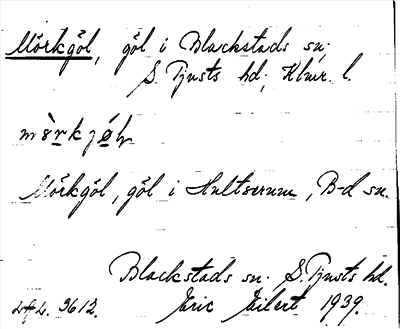 Mörkgöl, göl i Blackstads sn.
S. Tjusts hd, Klmr. l.
Mörkgöl, göl i Hultserum, B-d sn.
Blackstads sn. S. Tjusts hd.
9612. Eric Eilert 1939.